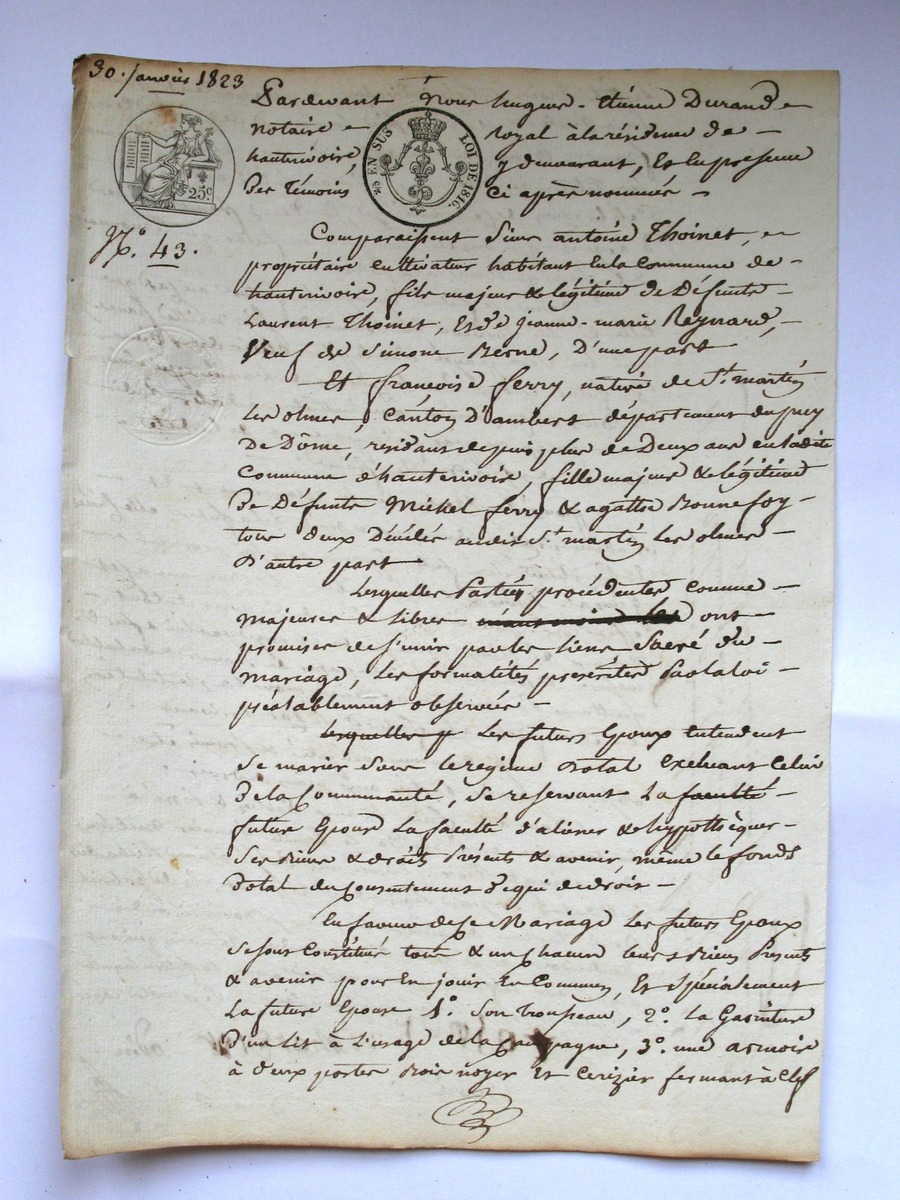 30. janvier 1823
Pardevant Nous hugues-étienne Durand
notaire royal à la résidence de
hauterivoire y demeurant, Et En présence
Des Témoins ci après nommés
25c.
EN SUS LOI DE 1816.
N.° 43.
Comparaissent Sieur antoine Thoinet,
propriétaire cultivateur habitant En la Commune de
hauterivoire, fils majeur & légitime de Défunts
Laurent Thoinet, Et de jeanne-marie Reynard,
Veuf de Simone Berne, D'une part
Et françoise ferry, native de St. martin
les olmes, canton D'ambert département du puy
De Dôme, résidant depuis plus de Deux ans en ladite
Commune d'hauterivoire, fille majeure & légitime
De Défunts Michel ferry & agathe Bonnefoy
tous Deux Décédés audit St. martin les olmes
D'autre part
Lesquelles Parties procédentes comme
majeures & libres ont
promises de s'unir par les liens Sacré du
mariage, Les formalités prescrites Par la loi
préalablement observées
Lesquelles p Les futurs Epoux entendent
Se marier sous le régime Dotal Excluant Celui
De la Communauté, Se reservant La faculté
future Epouse La faculté d'aliéner & hypothéquer
Ses Biens & droits Présents & avenir, même le fonds
Dotal du Consentement De qui de droit
En faveur de ce Mariage Les futurs Epoux
Se sont Constitué tous & un chacun leurs Biens Présents
& avenir pour En jouir En Commun, Et Spécialement
La future Epouse 1°. Son Trousseau, 2°. La Garniture
D'un Lit à L'usage de la Campagne, 3°. une armoire
à deux portes Bois noyer Et Cerizier fermant à Clef